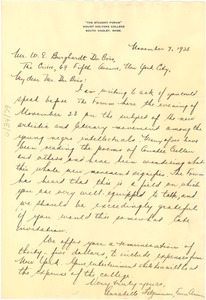 "THE STUDENT FORUM"
MOUNT HOLYOKE COLLEGE
SOUTH HADLEY, MASS.
November 7, 1925
Mr. W. E. Burghardt Du Bois,
The Crisis, 69 Fifth Avenue, New York City.
My dear Mr. Du Bois:
I am writing to ask if you would
speak before The Forum here the evening of
November 28 on the subject of the new
artistic and literary movement among the
young negro intellectuals. We have
been reading the poems of Countee Cullen
and others and have been wondering what
this whole new movement signifies. The Forum
has felt that this is a field on which
you are very well equipped to talk, and
we should be exceedingly grateful
if you would grant this somewhat late
invitation.
We offer you a remuneration of
thirty-five dollars, to include expenses from
New York. Your entertainment here would be at
the expense of the college.
Very truly yours,